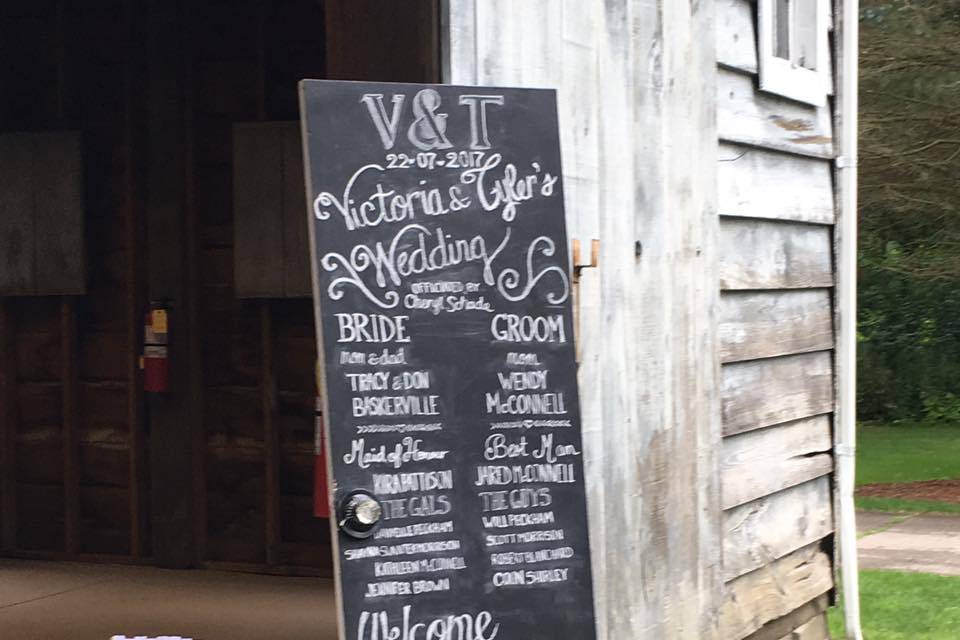 V & T
22-07-2017
Victoria & Tyler's
Wedding
OFFICIATED BY
Cheryl Schade
BRIDE
mom & dad
TRACY & DON
BASKERVILLE
Maid of Honour
KIRA PATTISON
THE GALS
DANIELLE PECKHAM
SHANNA SLANTER MORRISON
KATHLEEN McCONNELL
JENNIFER BROWN
GROOM
mom
WENDY
McCONNELL
Best Man
JARED McCONNELL
THE GUYS
WILL PECKHAM
SCOTT MORRISON
ROBERT BLANCHARD
COLIN SHIRLEY
Welcome